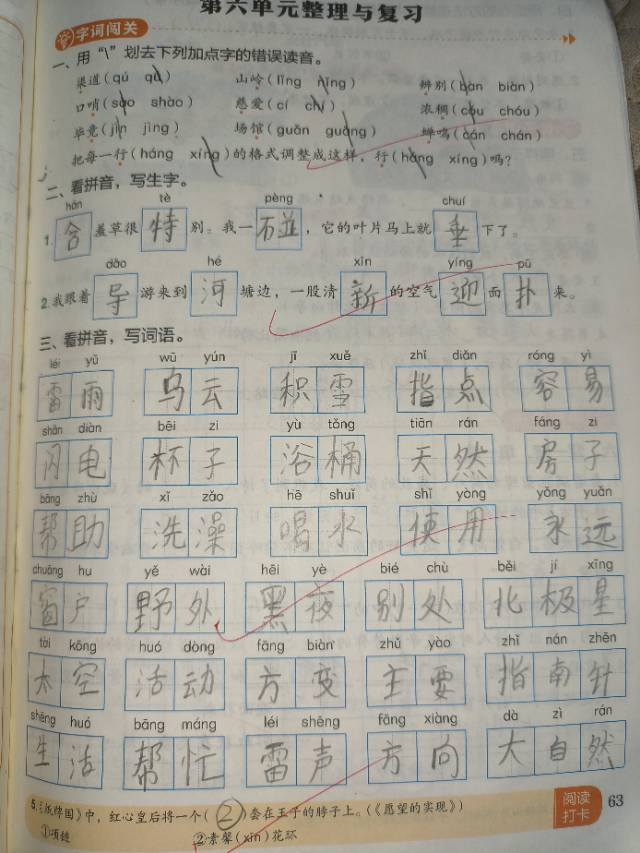 第六单元整理与复习
字词闯关
一、用“\”划去下列加点字的错误读音。
渠道(qú qu) 山岭(lǐng nǐng) 辨别(bàn biàn)
口哨(sào shào) 慈爱(cí chí) 浓稠(cóu chóu)
毕竟(jìn jìng) 场馆(guǎn guǎng) 蝉鸣(cán chán)
把每一行(háng xíng)的格式调整成这样,行(háng xíng)吗?
二、看拼音,写生字。
hán tè pèng chuí
1. 含 羞草很 特 别。我一 碰 ,它的叶片马上就 垂 下了。
dǎo hé xīn yíng pū
2.我跟着 导 游来到 河 塘边,一股清 新 的空气 迎 面 扑 来。
三、看拼音,写词语。
léi yǔ wū yún jī xuě zhǐ diǎn róng yì
雷雨 乌云 积雪 指点 容易
shǎn diàn bēi zi yù tǒng tiān rán fáng zi
闪电 杯子 浴桶 天然 房子
bāng zhù xǐ zǎo hē shuǐ shǐ yòng yǒng yuǎn
帮助 洗澡 喝水 使用 永远
chuāng hu yě wài hēi yè bié chù běi jí xīng
窗户 野外 黑夜 别处 北极星
tài kōng huó dòng fāng biàn zhǔ yào zhǐ nán zhēn
太空 活动 方变 主要 指南针
shēng huó bāng máng léi shēng fāng xiàng dà zì rán
生活 帮忙 雷声 方向 大自然
5.《纸牌国》中,红心皇后将一个( ② )套在王子的脖子上。(《愿望的实现》)
①项链 ②素馨(xīn)花环
阅读
打卡
63